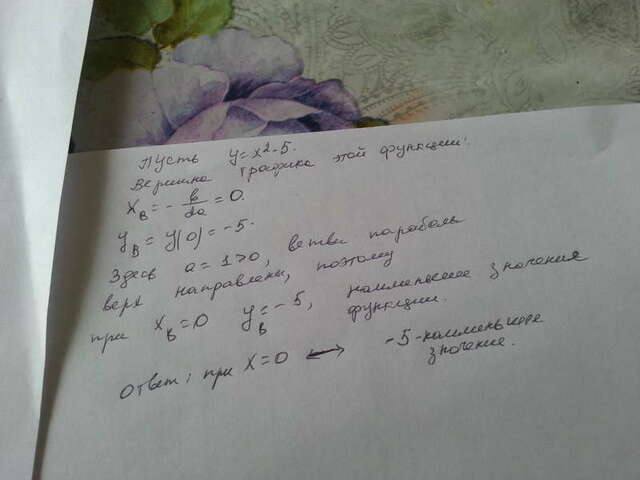 Пусть y = x² - 5.
Вершина графика этой функции:
x_B = - b/2a = 0.
y_B = y(0) = -5.
Здесь a = 1 > 0, ветви параболы
верх направлены, поэтому
при x_B = 0 y_B = -5, наименьшее значения
функции.
Ответ: при x = 0 ⟷ -5 - наименьшее
значение.